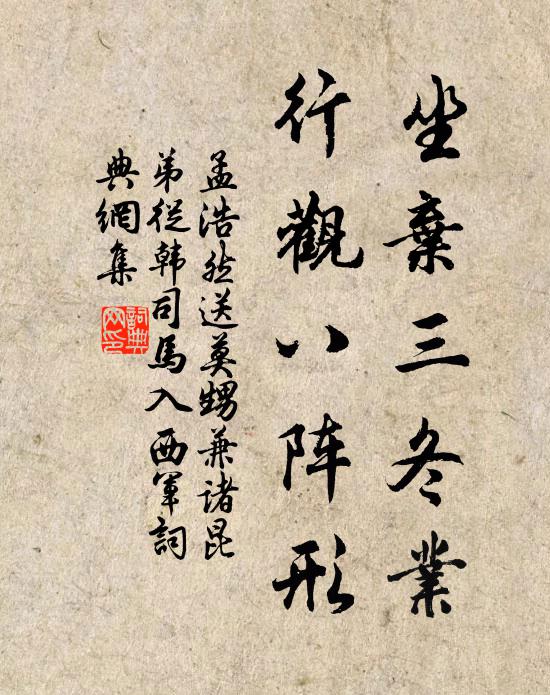 坐棄三冬業
行觀八阵形
孟浩然送莫甥兼诸昆
弟從韩司馬入西軍詞
典網集
詞典
网印